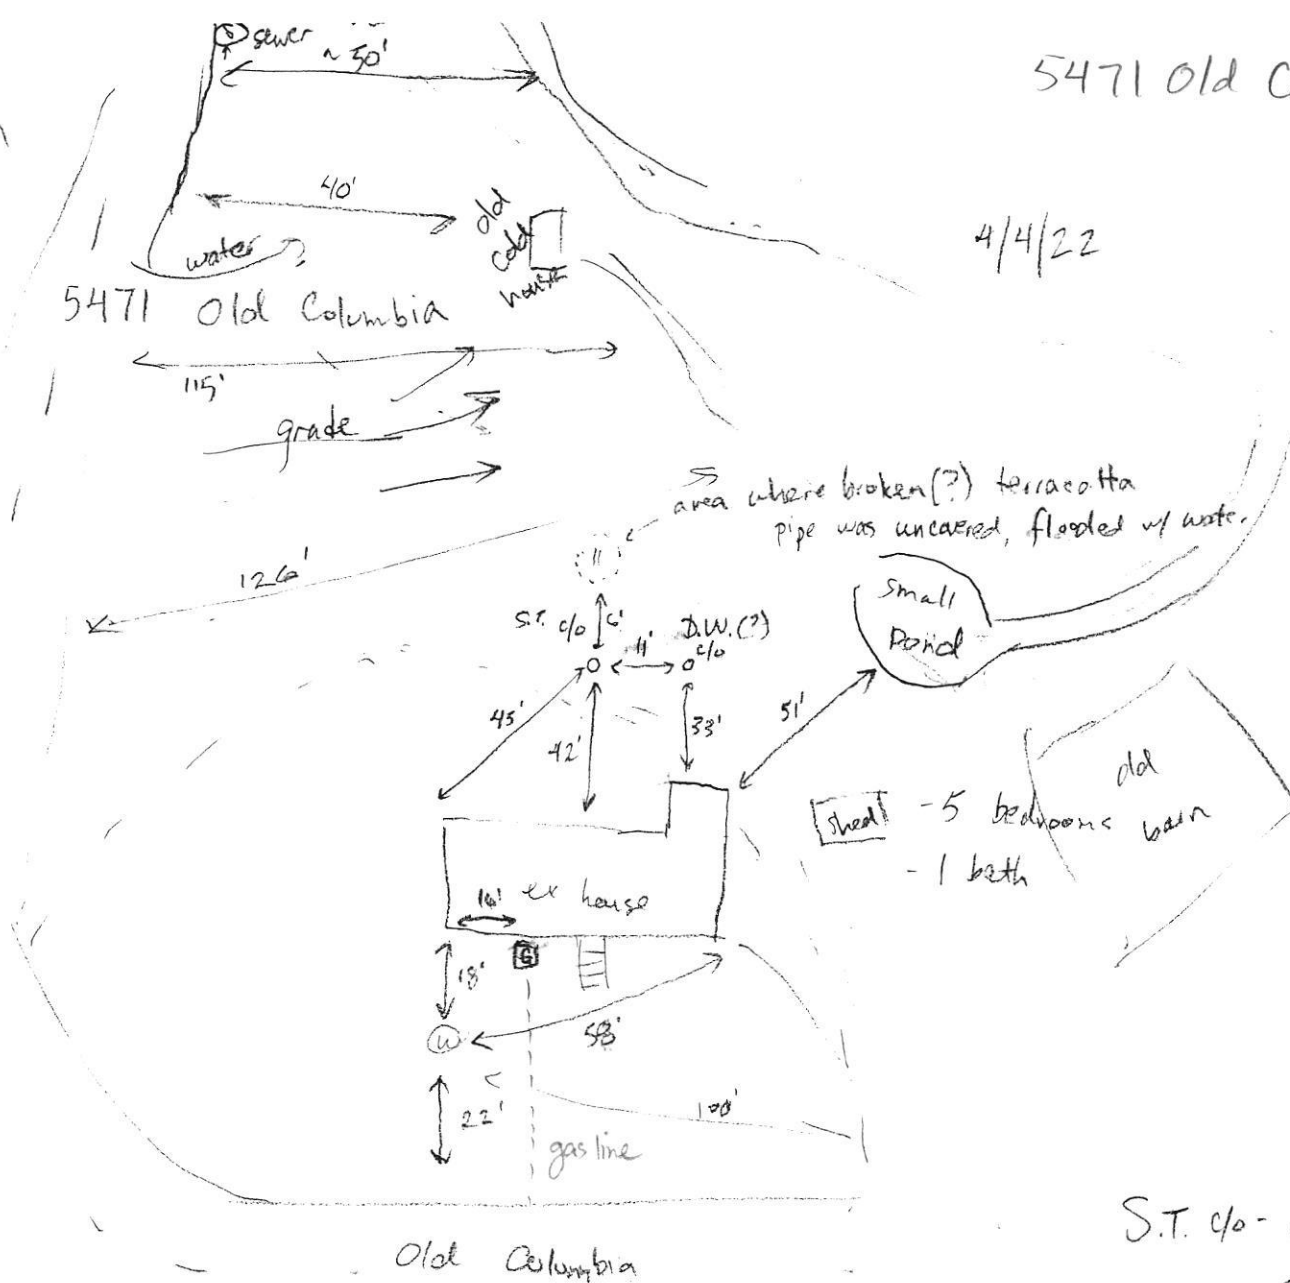 sewer
~ 50'
5471 Old C
40'
old
cold
house
4/4/22
water ?
5471 Old Columbia
115'
grade
area where broken(?) terracotta
pipe was uncovered, flooded w/ water.
126'
11
small
Pond
S.T. c/o
6'
D.W.(?)
c/o
11'
45'
42'
33'
51'
shed
-5 bedrooms
-1 bath
old
barn
ex house
16'
G
18'
W
58'
22'
100'
gas line
S.T. c/o -
Old Columbia